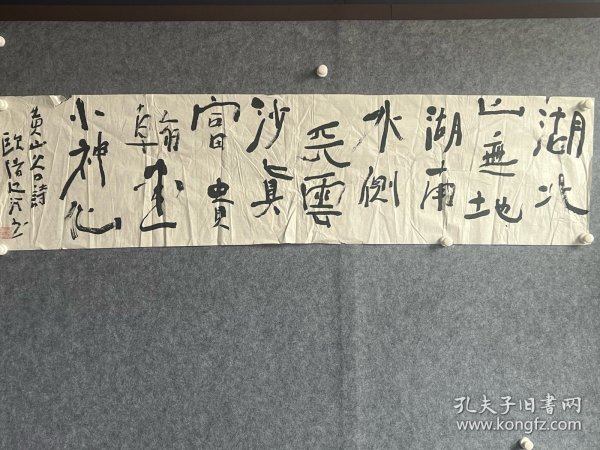 湖北
山無地
湖南
水側
天雲
沙真
富貴
翰墨
小神仙
黄山谷詩
孔夫子旧书网
www.kongfz.com